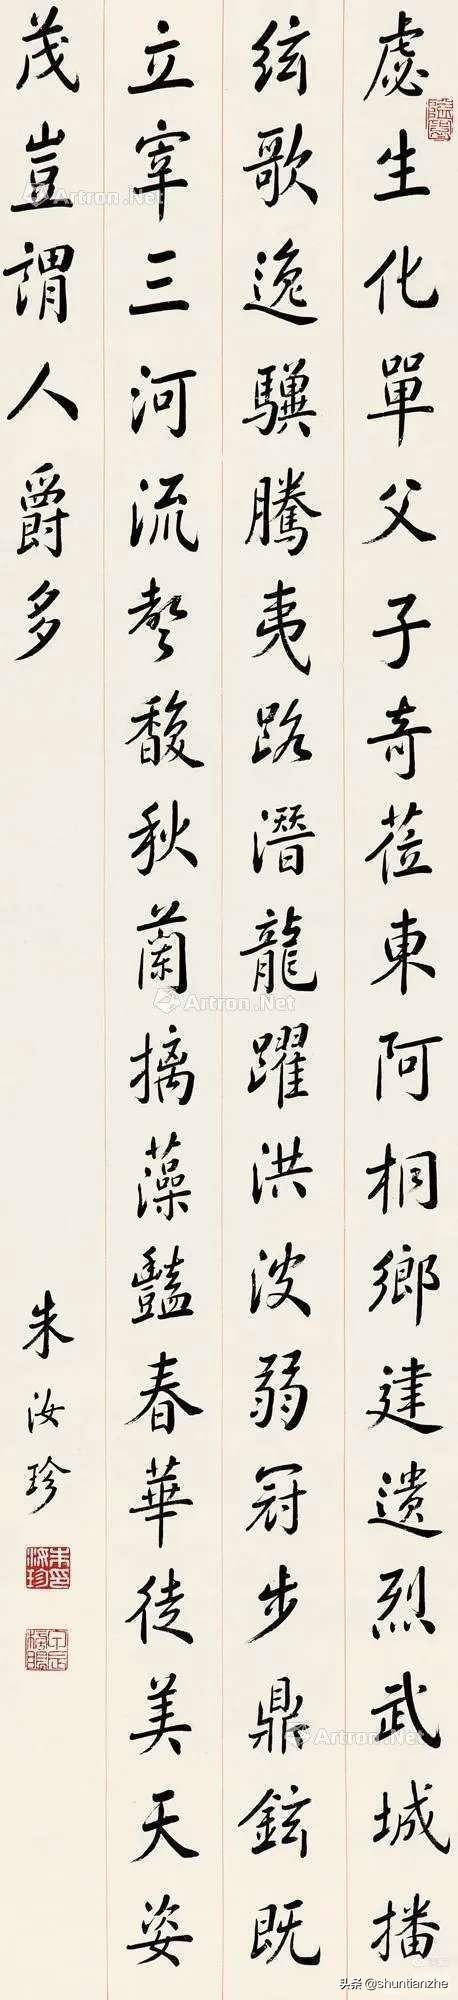 虙生化單父子奇莅東阿桐鄉建遺烈武城播
弦歌逸驥騰夷路潛龍躍洪波弱冠步鼎鉉既
立宰三河流聲馥秋蘭摛藻豔春華徒美天姿
茂豈謂人爵多
朱汝珍
Artron.Net
Artron.Net
Artron.Net
Artron.Net
头条 @shuntianzhe